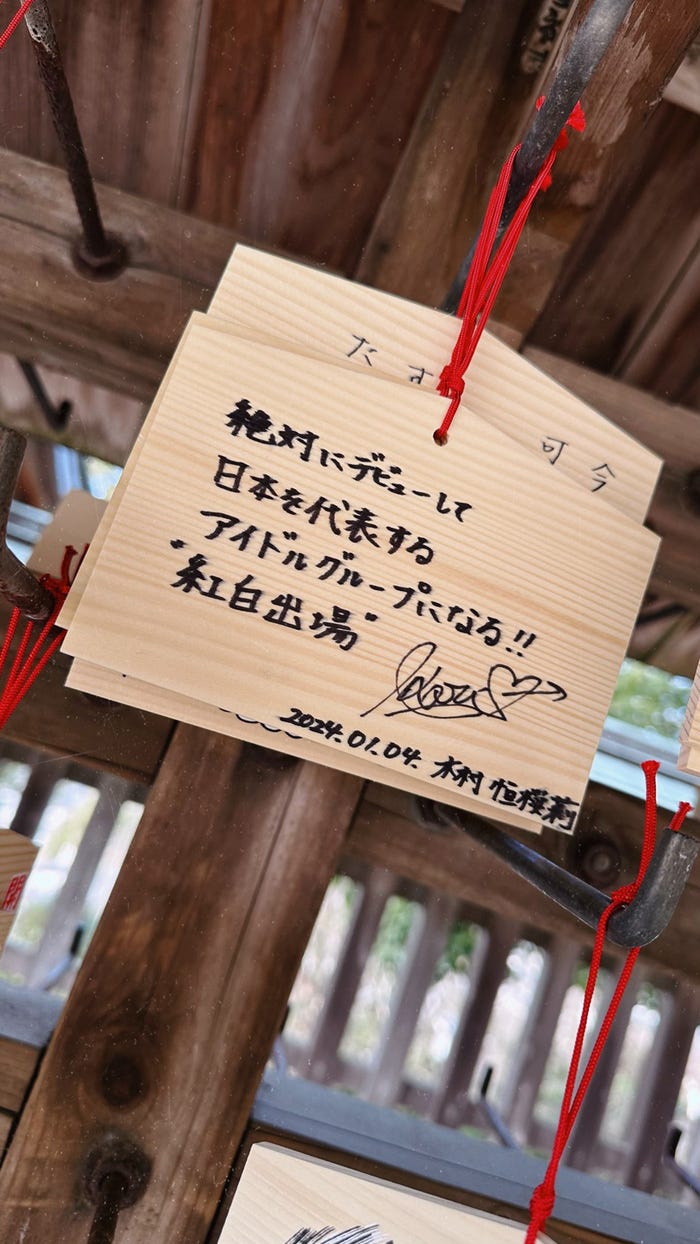 絶対にデビューして
日本を代表する
アイドルグループになる!!
"紅白出場"
2024.01.04. 木村 恒桜莉
たす
可 今
開